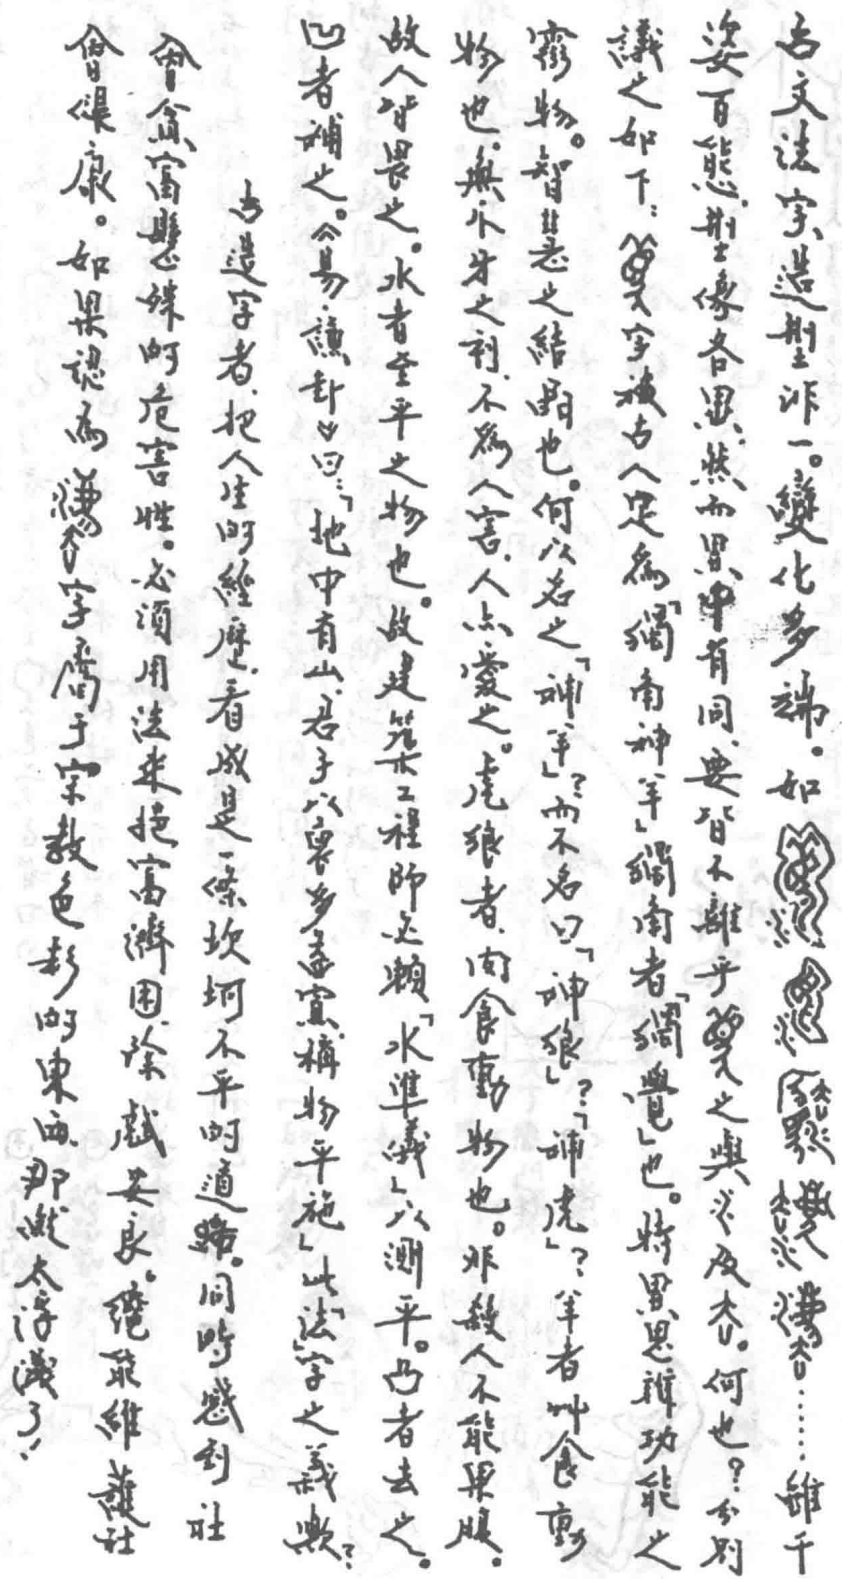 古文法字、造型非一。變化多端。如……雖千
姿百態、型像各異、然而異中有同、要皆不離乎之與及。何也？分別
議之如下：字被古人定為「獨角神羊」獨角者「獨覺」也。特異思維功能之
靈物。智慧之結晶也。何以名之「神羊」？而不名曰「神狼」？「神虎」？羊者艸食動
物也、無爪牙之利、不為人害、人亦愛之。虎狼者、肉食動物也。非殺人不能果腹。
故人皆畏之。水者至平之物也。故建築工程師必賴「水準儀」以測平。凸者去之。
凹者補之。《易·謙卦》曰：「地中有山、君子以裒多益寡、稱物平施」此「法」字之義歟？
古造字者、把人生的經歷、看成是一條坎坷不平的道路。同時感到社
會貧富懸殊的危害性。必須用法來挹富濟困、除賊安良。纔能維護社
會健康。如果認為字屬于宗教色彩的東西、那就太浮淺了！